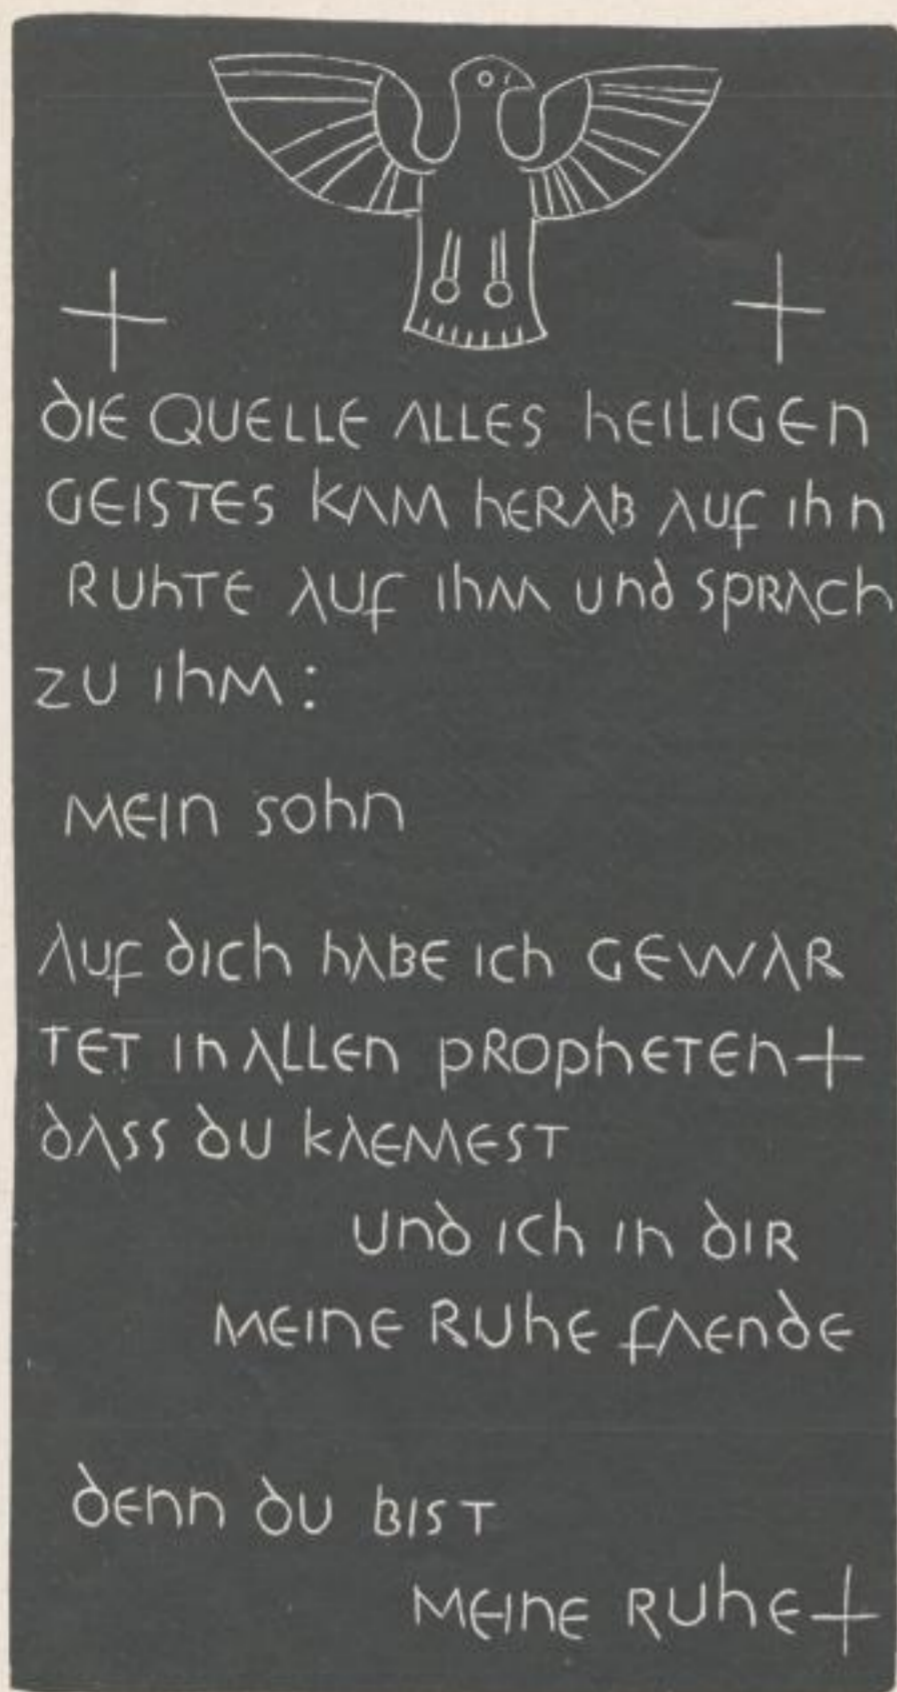 + +
DIE QUELLE ALLES hEILIGEn
GEISTES KAM hERAB AUf Ihn
RUhTE AUf IhM Und SpRACh
ZU IhM:
MEIn Sohn
AUf dICh hABE ICh GEWAR
TET In ALLEn pROphETEn+
dASS dU KAEMEST
Und ICh In dIR
MEInE RUhE fAEndE
dEnn dU BIST
MEInE RUhE+